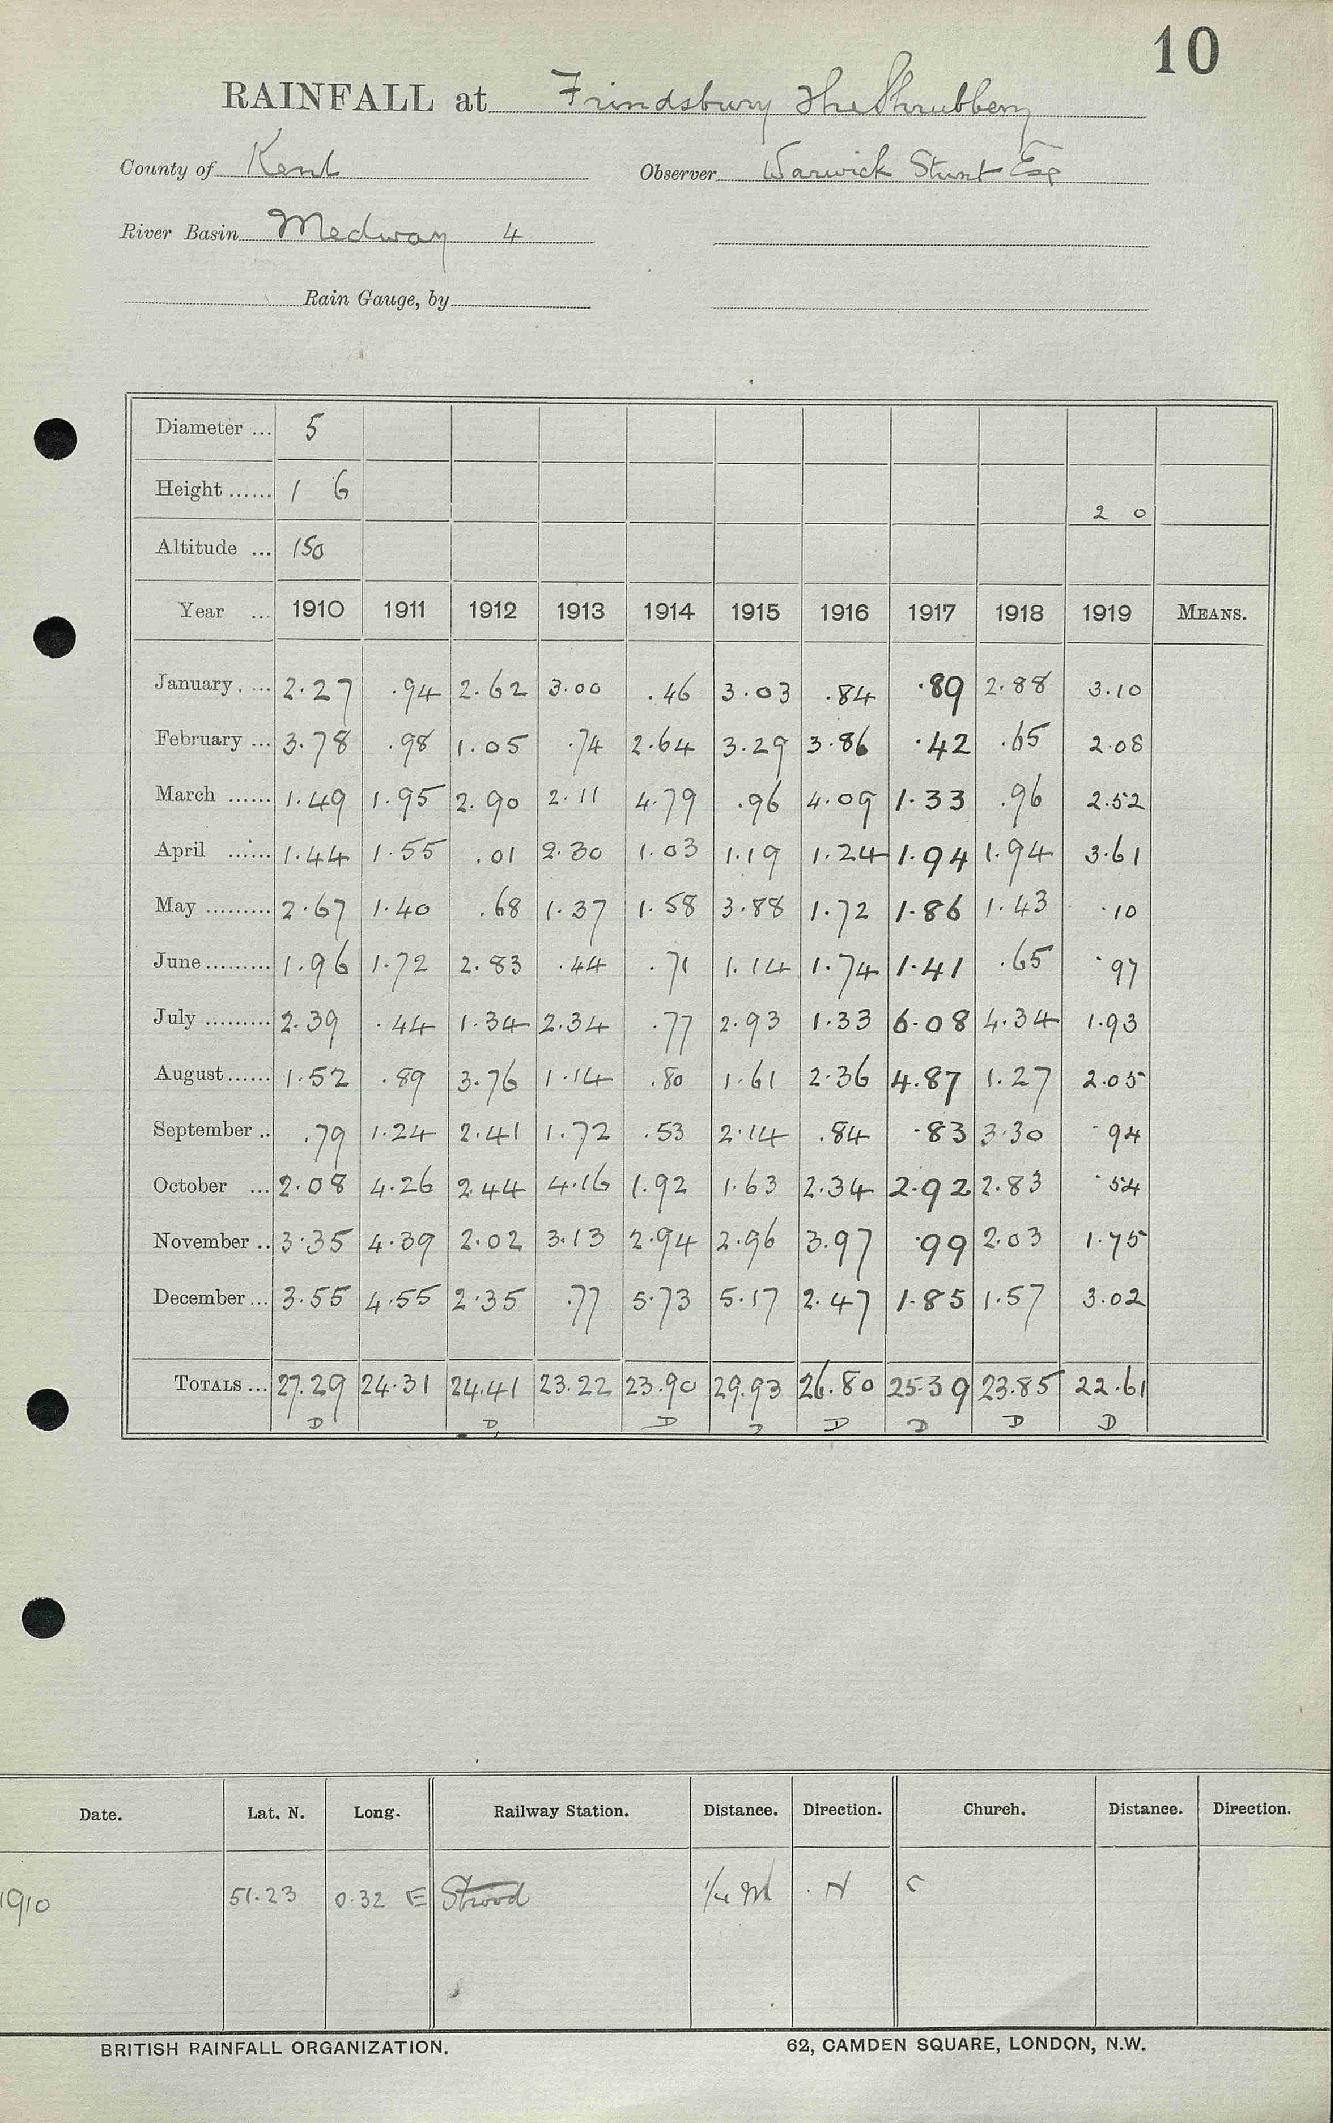 10
RAINFALL at Frindsbury The Shrubbery
County of Kent Observer Warwick Stunt Esq
River Basin Medway 4
Rain Gauge, by
Diameter ... 5
Height ...... 1 6 2 0
Altitude ... 150
Year ... 1910 1911 1912 1913 1914 1915 1916 1917 1918 1919 MEANS.
January ... 2.27 .94 2.62 3.00 .46 3.03 .84 .89 2.88 3.10
February ... 3.78 .98 1.05 .74 2.64 3.29 3.86 .42 .65 2.08
March ...... 1.49 1.95 2.90 2.11 4.79 .96 4.09 1.33 .96 2.52
April ...... 1.44 1.55 .01 2.30 1.03 1.19 1.24 1.94 1.94 3.61
May ......... 2.67 1.40 .68 1.37 1.58 3.88 1.72 1.86 1.43 .10
June ......... 1.96 1.72 2.83 .44 .71 1.14 1.74 1.41 .65 .97
July ......... 2.39 .44 1.34 2.34 .77 2.93 1.33 6.08 4.34 1.93
August ...... 1.52 .89 3.76 1.14 .80 1.61 2.36 4.87 1.27 2.05
September .. .79 1.24 2.41 1.72 .53 2.14 .84 .83 3.30 .94
October ... 2.08 4.26 2.44 4.16 1.92 1.63 2.34 2.92 2.83 .54
November .. 3.35 4.39 2.02 3.13 2.94 2.96 3.97 .99 2.03 1.75
December ... 3.55 4.55 2.35 .77 5.73 5.17 2.47 1.85 1.57 3.02
TOTALS ... 27.29 24.31 24.41 23.22 23.90 29.93 26.80 25.39 23.85 22.61
D D D D D D D D
Date. Lat. N. Long. Railway Station. Distance. Direction. Church. Distance. Direction.
1910 51.23 0.32 E Strood 1/4 M N C
BRITISH RAINFALL ORGANIZATION. 62, CAMDEN SQUARE, LONDON, N.W.